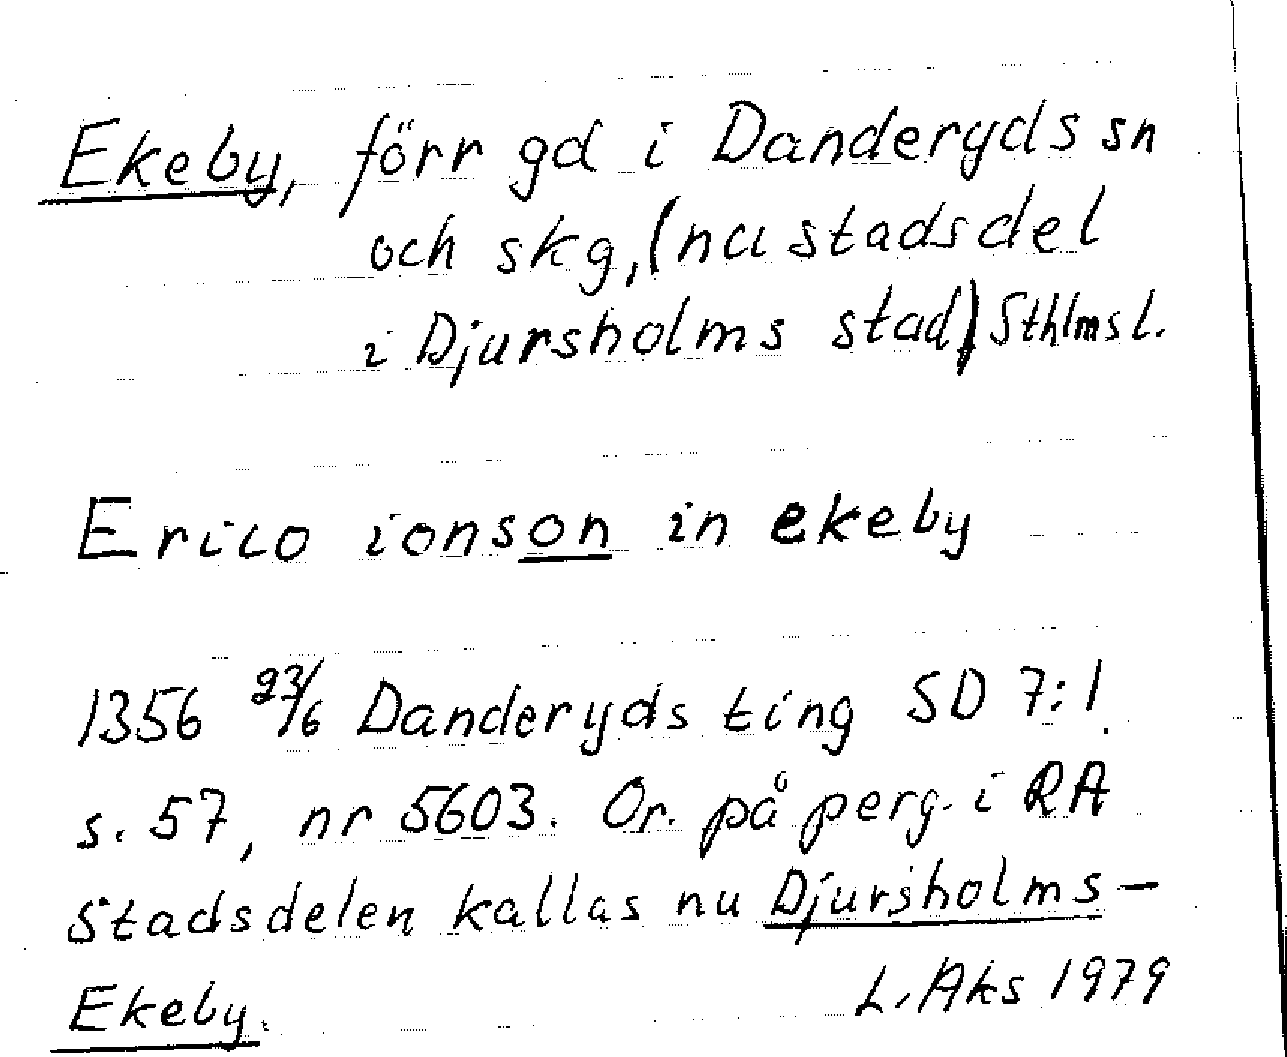 Ekeby, förr gd i Danderyds sn
och skg, (nu stadsdel
i Djursholms stad) Sthlms l.
Erico ionson in ekeby
1356 23/6 Danderyds ting SD 7:1
s. 57, nr 5603. Or. på perg. i RA
Stadsdelen kallas nu Djursholms-
Ekeby.
L. Aks 1979